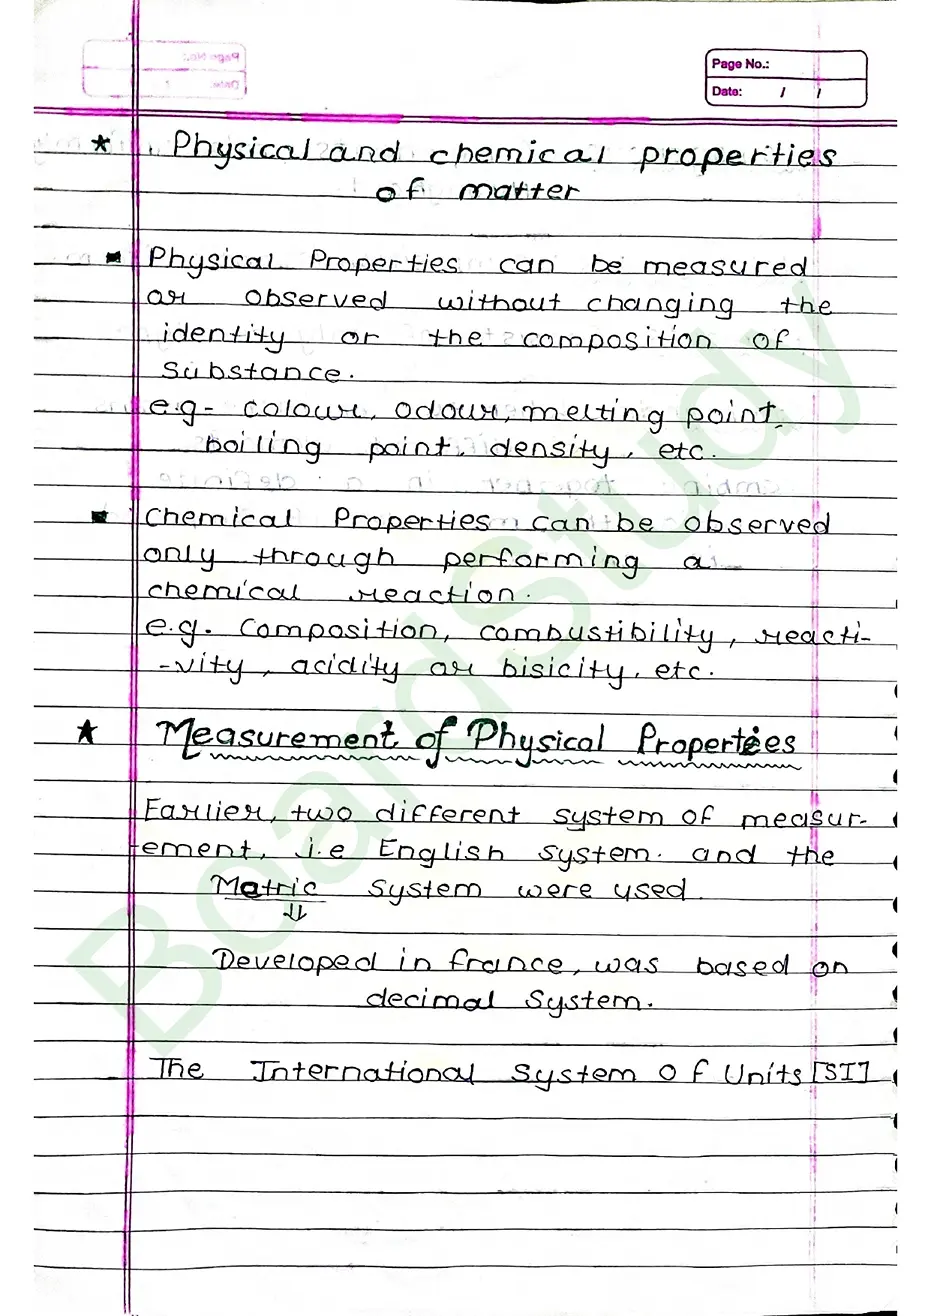 Page No.:
Date: / /
★ Physical and chemical properties
of matter
▪ Physical Properties can be measured
or observed without changing the
identity or the composition of
Substance.
e.g- colour, odour, melting point,
boiling point, density, etc.
▪ Chemical Properties can be observed
only through performing a
chemical reaction.
e.g. Composition, combustibility, reacti-
-vity, acidity or bisicity, etc.
★ Measurement of Physical Properties
Earlier, two different system of measur-
ement, i.e English system. and the
Matric system were used.
⇓
Developed in france, was based on
decimal System.
The International System of Units [SI]
BoardStudy